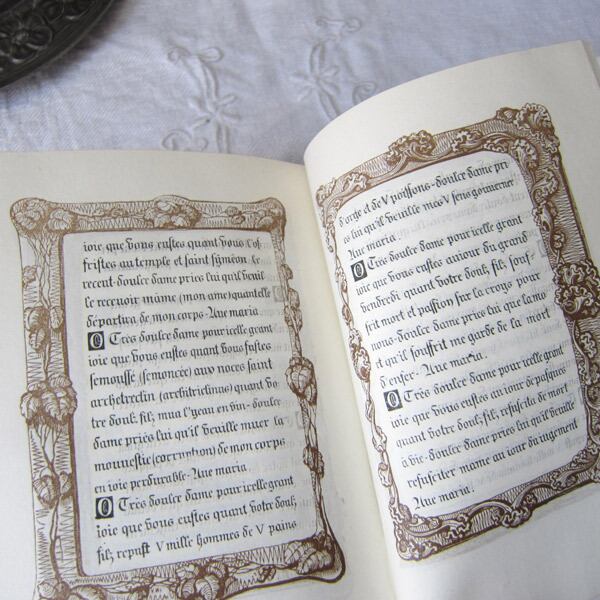 ioie que vous eustes quant vous l'of
fristes au temple et saint syméon, le
recent doulce dame pries lui qu'il veuil
le recevoir mame (mon ame) quantelle
départira de mon corps. Ave maria.
O Tres doulce dame pour icelle grant
ioie que vous eustes quant vous fustes
semousse (semoncée) aux noces saint
archetreclin (architriclinus) quant vo
tre doulx filz mua l'eau en vin, doulce
dame priés lui qu'il veuille muer la
mauvestié (corruption) de mon corps
en ioie perdurable. Ave maria.
O Tres doulce dame pour icelle grant
ioie que vous eustes quant votre doulx
filz reput V mille hommes de V pains
d'orge et de V poissons, doulce dame pri
es lui qu'il veuille mes V sens gouverner
Ave maria.
O Tres doulce dame pour icelle grant
ioie que vous eustes autour du grand
vendredi quant votre doulx filz souf
frit mort et passion sur la croys pour
nous, doulce dame priés lui que la mo
rt qu'il souffrit me garde de la mort
d'enfer. Ave maria.
O Tres doulce dame pour icelle grant
ioie que vous eustes au iour de pasques
quant votre doulx filz resuscita de mort
à vie, doulce dame priés lui qu'il veuille
resusciter mame au iour du iugement
Ave maria.